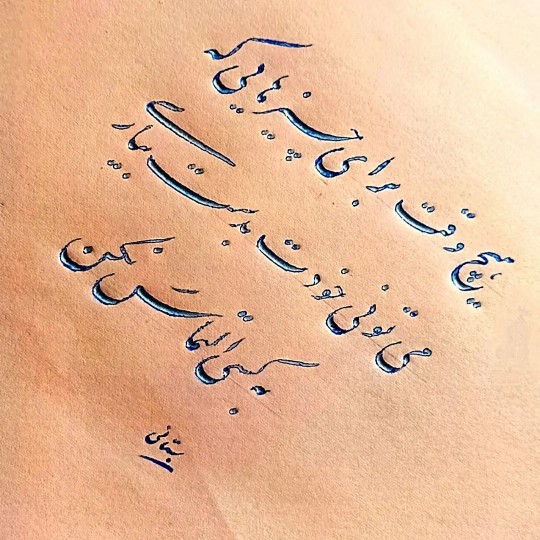 هیچ وقت برای چیزهایی که
می تونی خودت بدست بیاری
به کسی التماس نکن